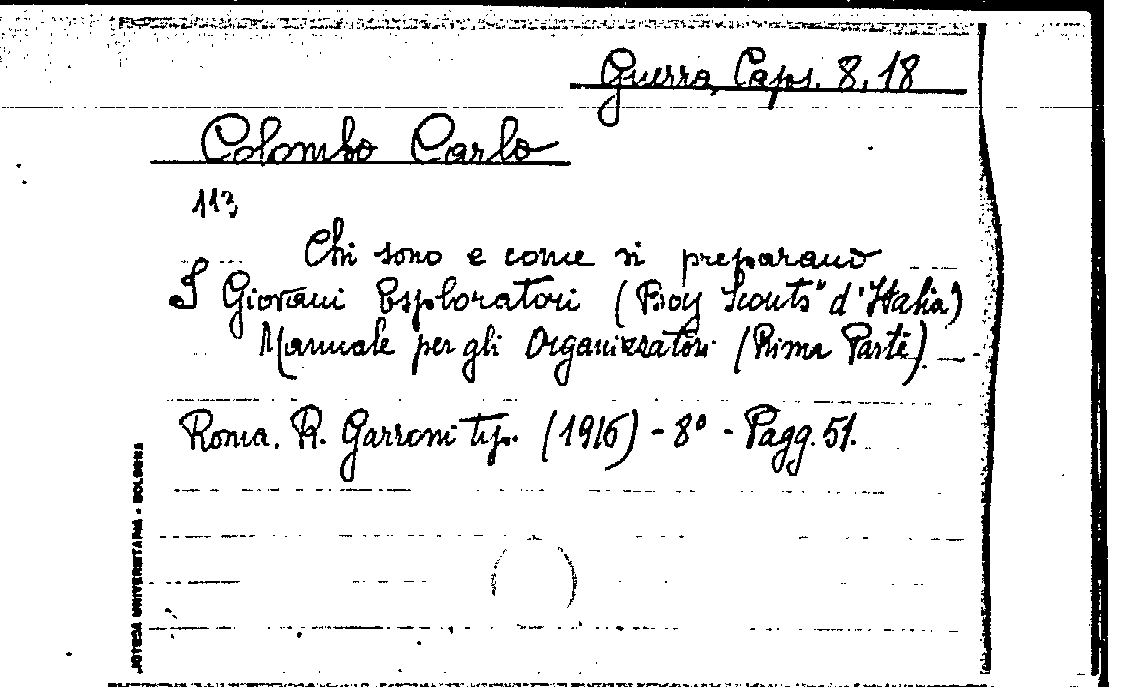 Guerra, Caps. 8, 18
Colombo Carlo
113
Chi sono e come si preparano
I Giovani Esploratori (Boy Scouts" d'Italia)
Manuale per gli Organizzatori (Prima Parte).
Roma. R. Garroni tip. (1916) - 8° - Pagg. 51.
IOTECA UNIVERSITARIA - BOLOGNA